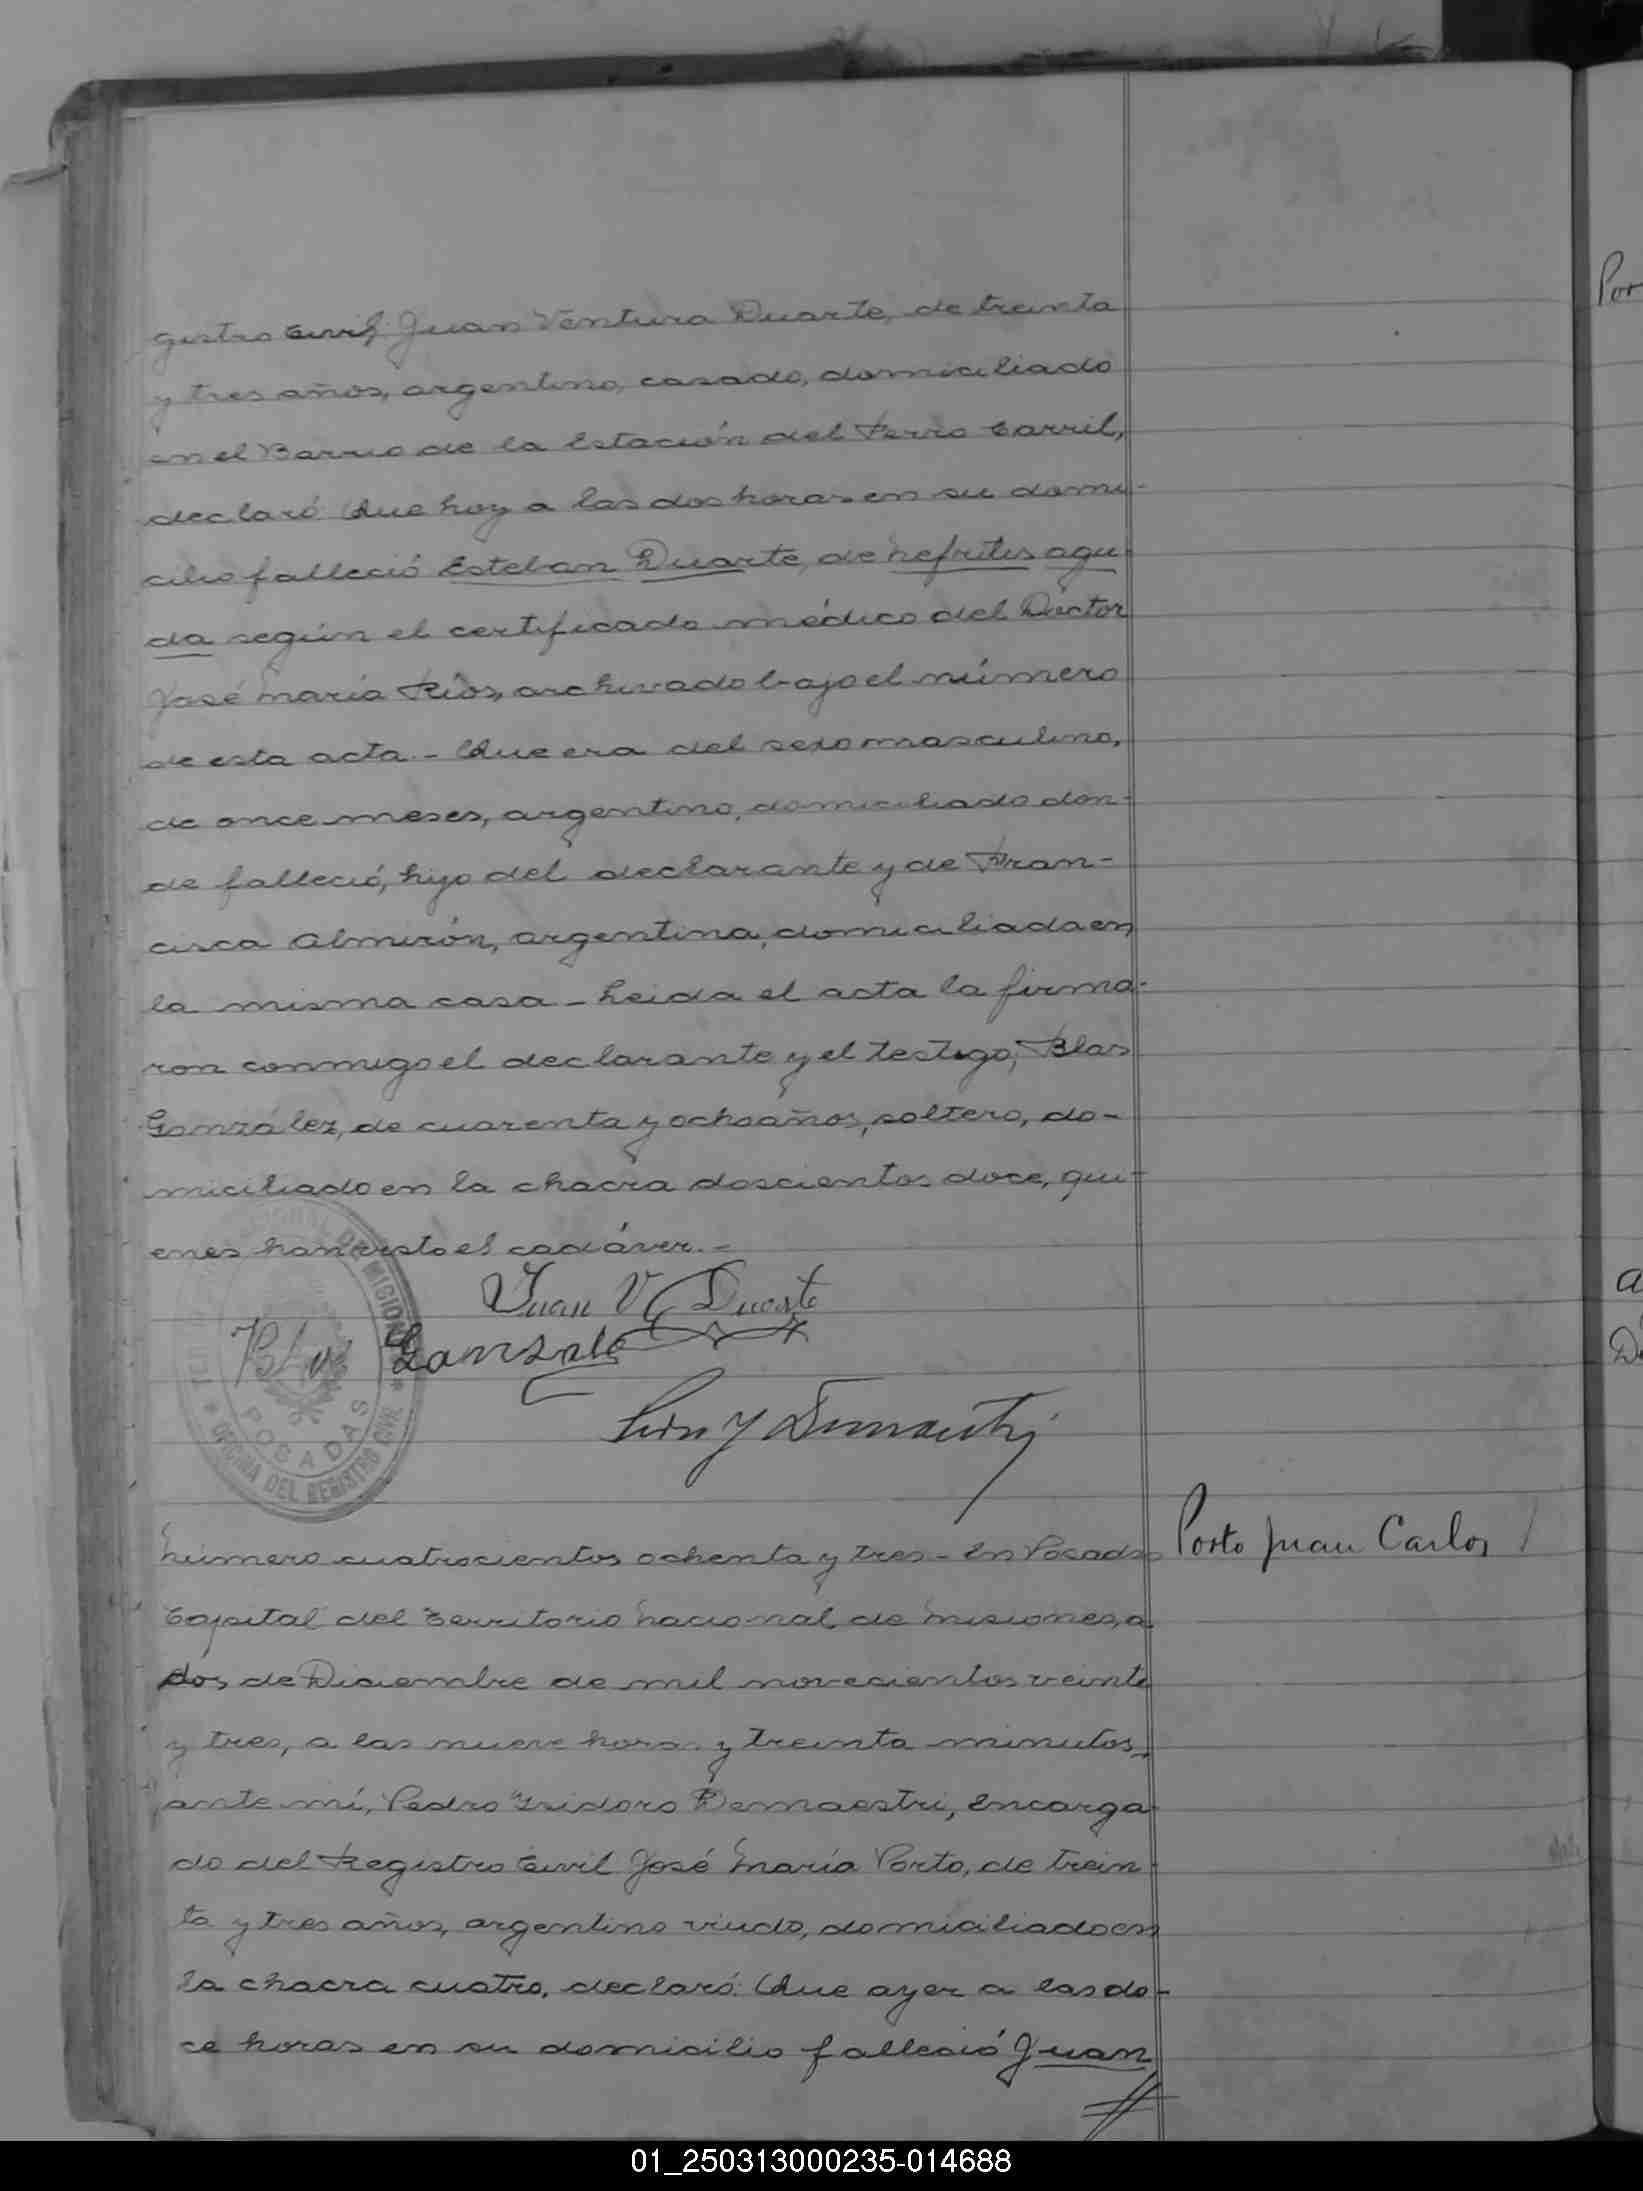 gistro Civil, Juan Ventura Duarte, de treinta
y tres años, argentino, casado, domiciliado
en el Barrio de la Estación del Ferro Carril,
declaró: Que hoy a las dos horas en su domi-
cilio falleció Esteban Duarte, de nefritis agu-
da según el certificado médico del Doctor
José María Ríos, archivado bajo el número
de esta acta.- Que era del sexo masculino,
de once meses, argentino, domiciliado don-
de falleció, hijo del declarante y de Fran-
cisca Almirón, argentina, domiciliada en
la misma casa - Leida el acta la firma-
ron conmigo el declarante y el testigo, Blas
González, de cuarenta y ocho años, soltero, do-
miciliado en la chacra doscientos doce, qui-
enes han visto el cadáver.-
Juan V. Duarte
Blas Gonzale
POSADAS
OFICINA DEL REGISTRO CIVIL
Número cuatrocientos ochenta y tres - En Posadas
Porto Juan Carlos
Capital del Territorio Nacional de Misiones, a
dos de Diciembre de mil novecientos veinte
y tres, a las nueve horas y treinta minutos,
ante mí, Pedro Isidoro Demaestri, Encarga-
do del Registro Civil José María Porto, de trein-
ta y tres años, argentino viudo, domiciliado en
la chacra cuatro, declaró: Que ayer a las do-
ce horas en su domicilio falleció Juan
Por
a
01_250313000235-014688